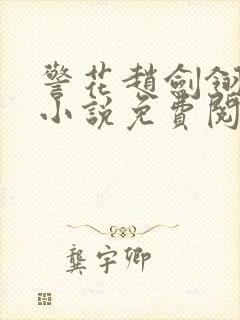 警花趙劍釵
小說免費閱
龔宇卿